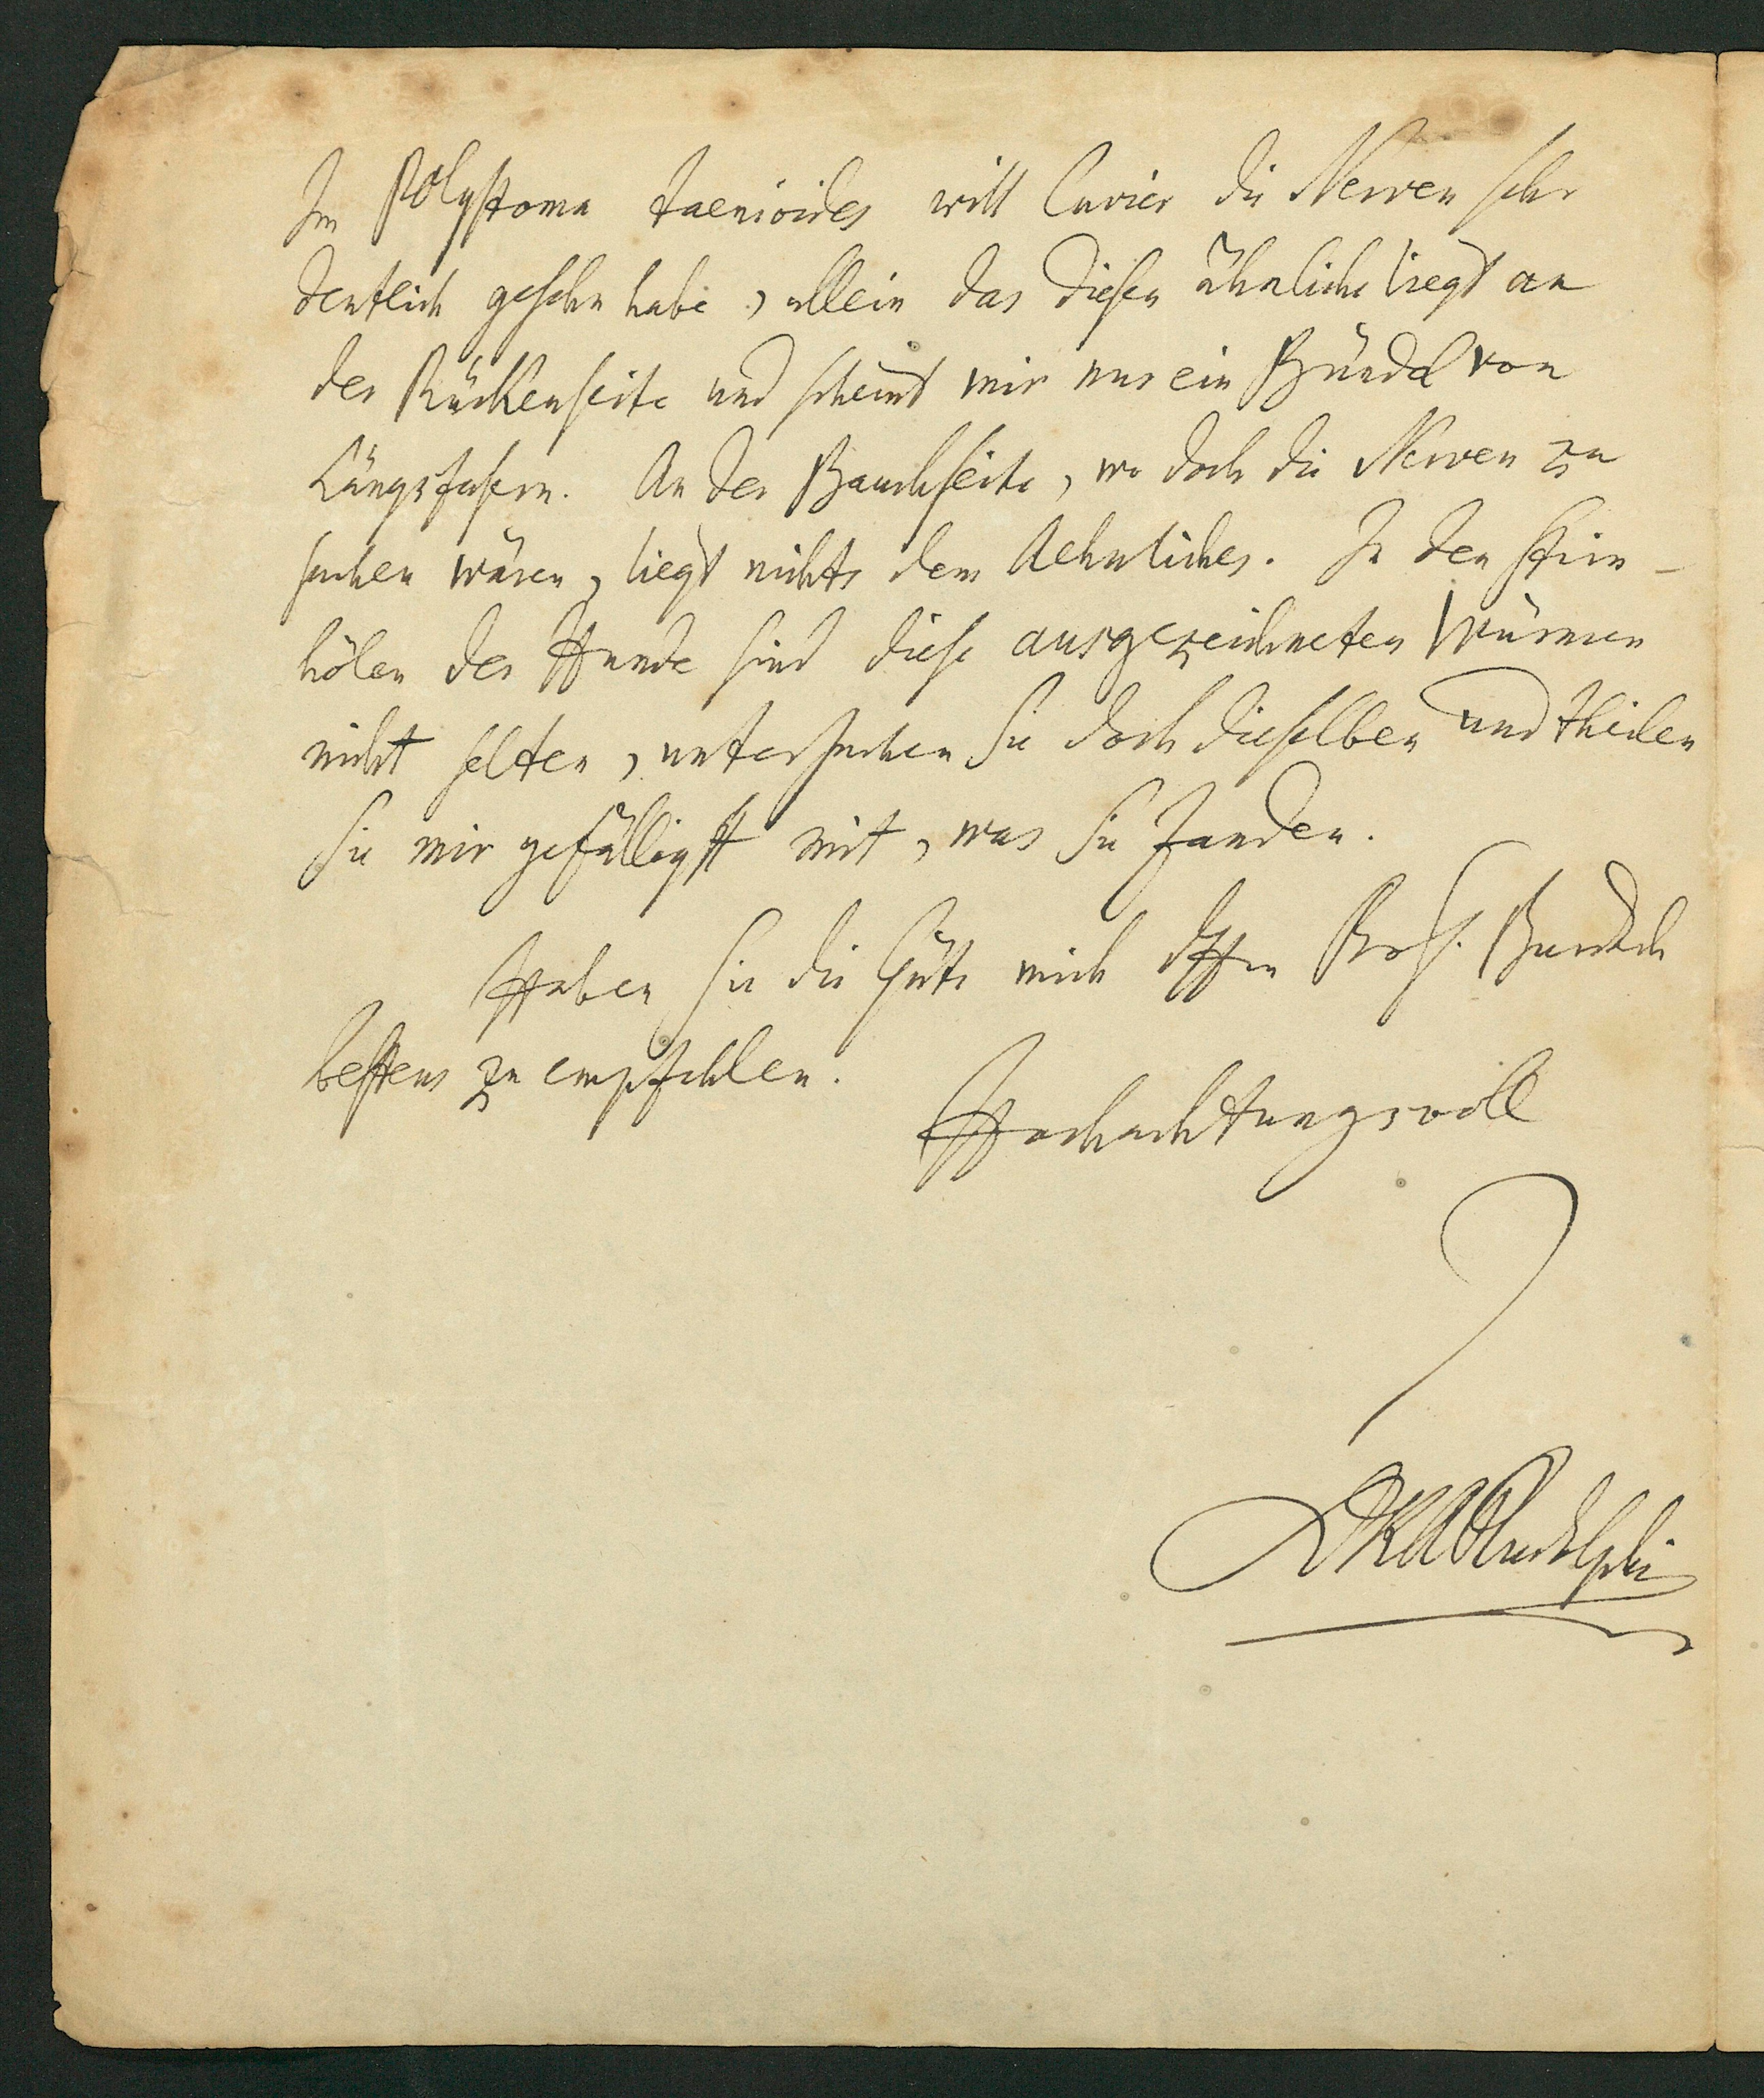 Im Polystoma taenioides will Cuvier die Nerven sehr
deutlich gesehn habe, allein das diesen ähnliche liegt an
der Rückenseite und scheint mir nur ein Bündel von
Längsfasern. An der Bauchseite, wo doch die Nerven zu
suchen wären, liegt nichts dem Aehnliches. In den Stirn-
hölen der Hunde sind diese ausgezeichneten Würmer
nicht selten, untersuchen Sie doch dieselben und theilen
Sie mir gefälligst mit, was Sie fanden.
Haben Sie die Güte mich Hrn Prof. Burdach
bestens zu empfehlen.
Hochachtungsvoll
DKARudolphi